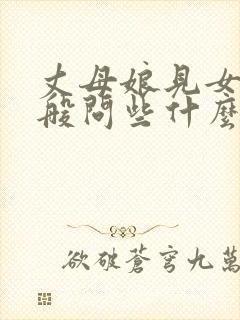 丈母娘見女
般問些什麼
欲破蒼穹九萬